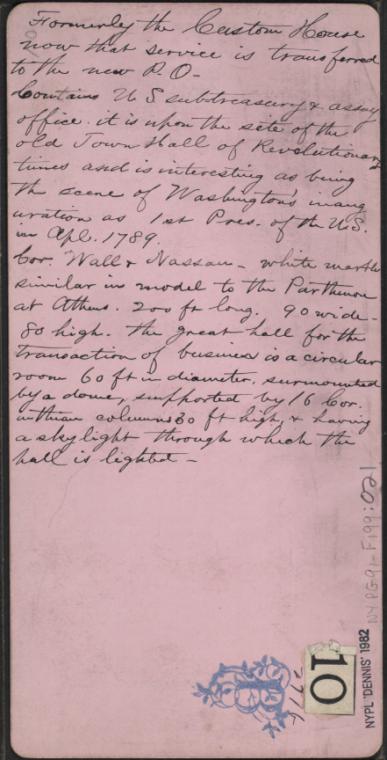 Formerly the Custom House
now that service is transferred
to the new P.O-
Contains U S subtreasury & assay
office. it is upon the site of the
old Town Hall of Revolutionary
times and is interesting as being
the scene of Washington's inaug
uration as 1st Pres. of the U.S.
in Apl. 1789.
Cor. Wall & Nassau - white marble
similar in model to the Parthenon
at Athens. 200 ft long. 90 wide -
80 high. the great hall for the
transaction of business is a circular
room 60 ft in diameter, surmounted
by a dome, supported by 16 Cor.
inthian columns 30 ft high, & having
a skylight through which the
hall is lighted -
NYPG91-F199:021
10
NYPL 'DENNIS' 1982